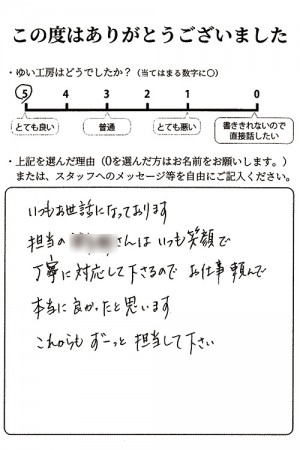 この度はありがとうございました
・ゆい工房はどうでしたか?(当てはまる数字に○)
5 4 3 2 1 0
とても良い 普通 とても悪い 書ききれないので
直接話したい
・上記を選んだ理由(0を選んだ方はお名前をお願いします。)
または、スタッフへのメッセージ等を自由にご記入ください。
いつもお世話になっております
担当の さんは いつも笑顔で
丁寧に対応して下さるので お仕事 頼んで
本当に良かったと思います
これからも ずーっと 担当して下さい